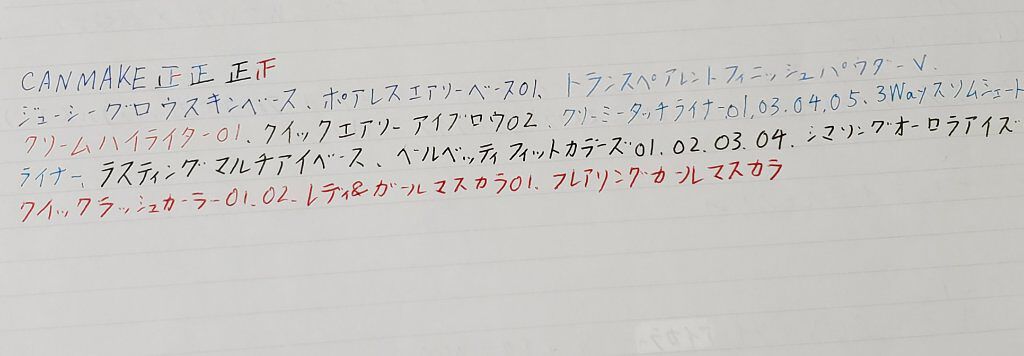 CANMAKE 正正正正
ジューシーグロウスキンベース、ポアレスエアリーベース01、トランスペアレントフィニッシュパウダーV、
クリームハイライター01、クイックエアリーアイブロウ02、クリーミータッチライナー01,03.04.05、3Wayスリムシェード
ライナー、ラスティングマルチアイベース、ベルベッティフィットカラーズ01.02.03.04、シマリングオーロラアイズ
クイックラッシュカーラー01.02、レディ&ガールマスカラ01、フレアリングカールマスカラ